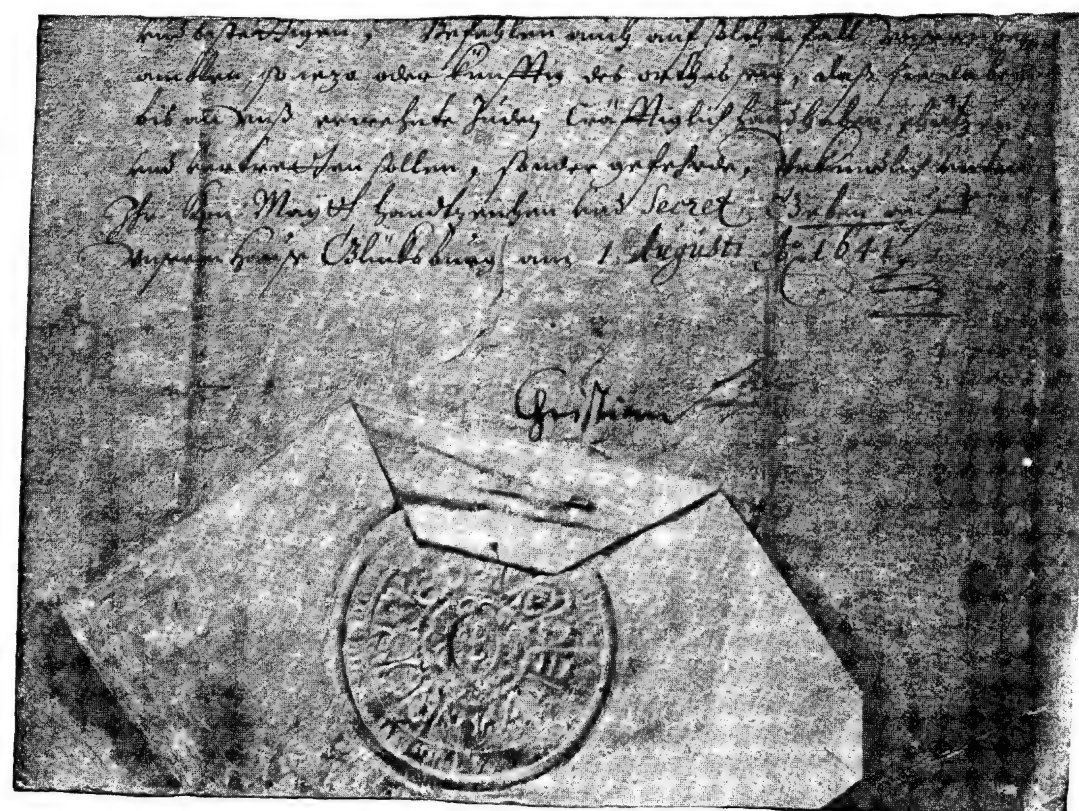 und bestettigen, Befehlen auch auf solchen fall unseren
ambtten, so iezo oder künfftig des orthes sein, daß sie
bis an Unß ermehnte Juden Cräfftiglich handthaben, schützen
und vertretten sollen, sonder gefehrde, Urkundlich unter
Ihr Kön Maytt handtzeichen und Secret, Geben auf
Unserem Hause Glücksburg am 1. Augusti Ao 1641.
Christian